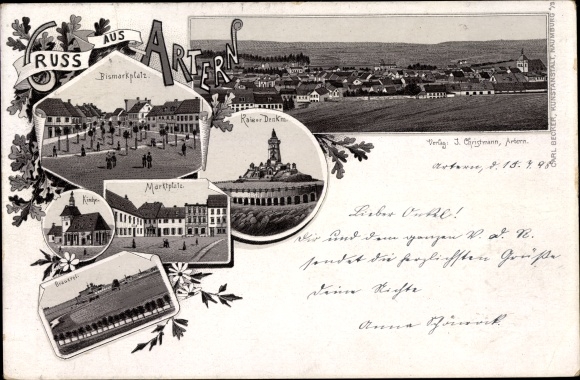 GRUSS AUS ARTERN
Bismarkplatz.
Kaiser Denkm.
Marktplatz.
Kirche.
Brauerei.
Verlag: J. Christmann, Artern.
CARL BECKER, KUNSTANSTALT, NAUMBURG a/S
Artern, d. 15.4.98
Lieber Onkel!
Dir und dem ganzen V. d. N.
sendet die herzlichsten Grüße
Deine Nichte
Anna